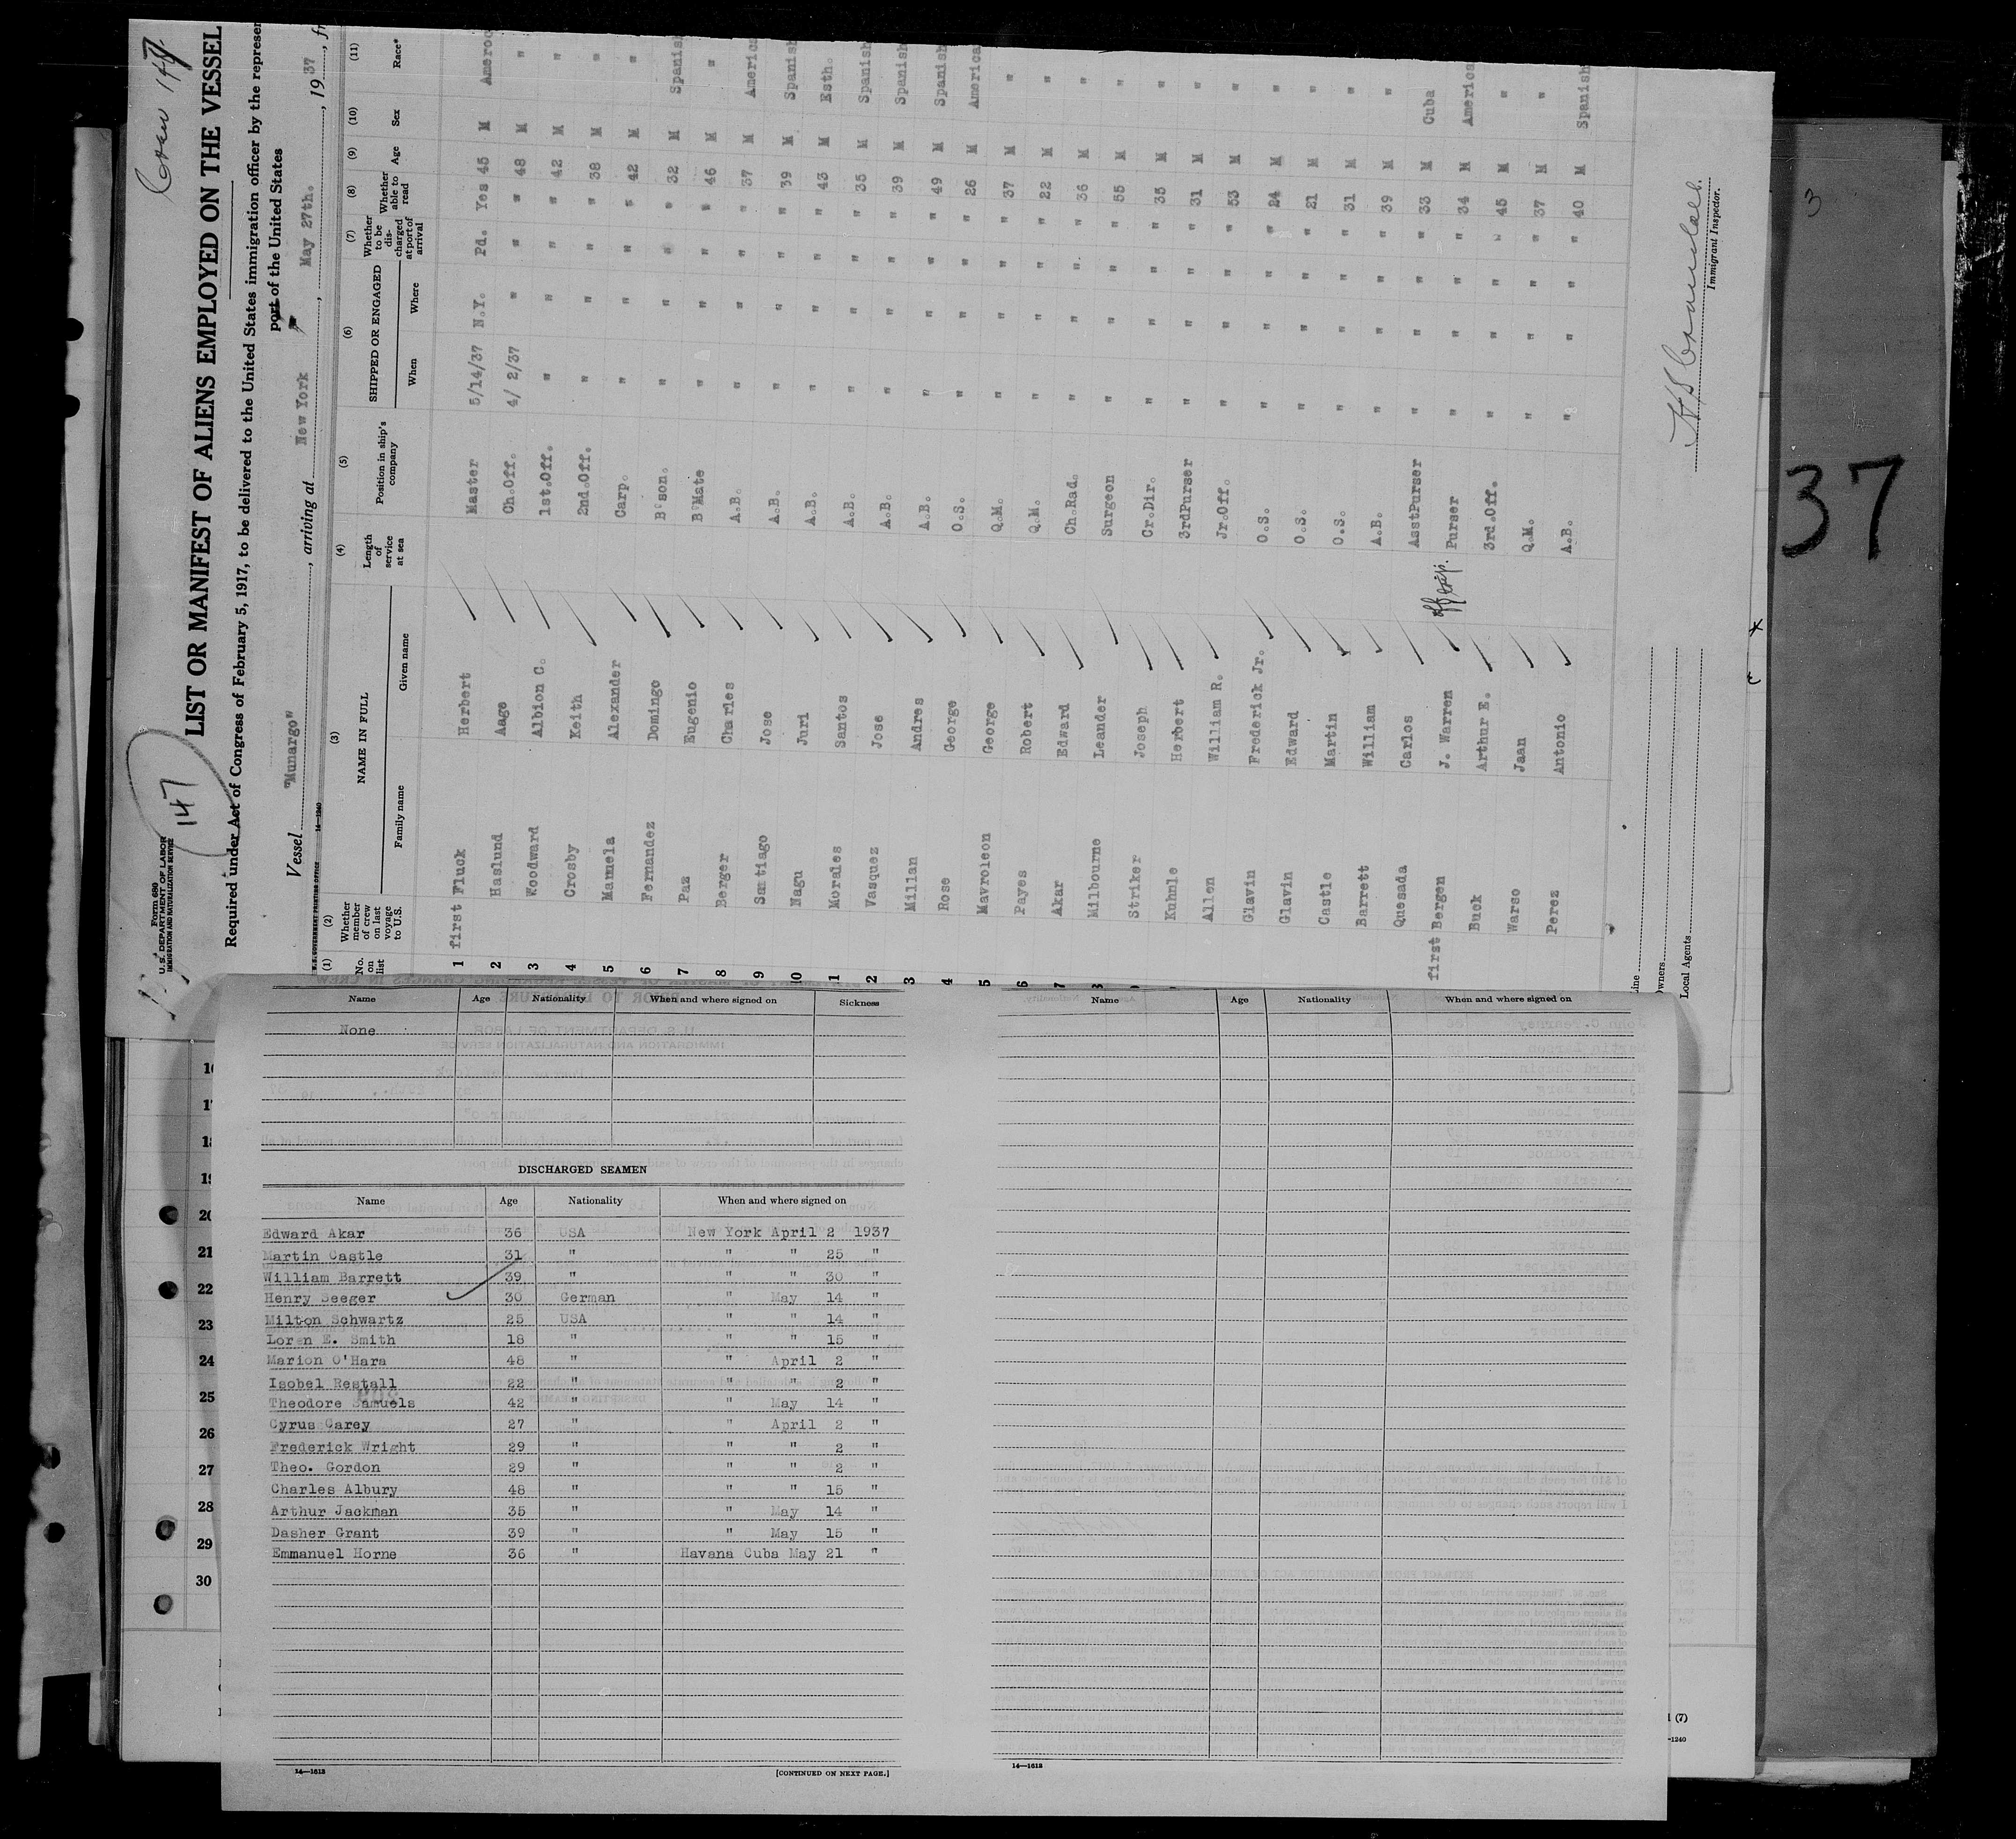 147
Form 680
U. S. DEPARTMENT OF LABOR
IMMIGRATION AND NATURALIZATION SERVICE
LIST OR MANIFEST OF ALIENS EMPLOYED ON THE VESSEL
Required under Act of Congress of February 5, 1917, to be delivered to the United States immigration officer by the represen
port of the United States
Vessel "Munargo", arriving at New York, May 27th., 1937, fr
(1) (2) (3) (4) (5) (6) (7) (8) (9) (10) (11)
No. on list
Whether member of crew on last voyage to U.S.
NAME IN FULL
Family name Given name
Length of service at sea
Position in ship's company
SHIPPED OR ENGAGED
When Where
Whether to be discharged at port of arrival
Whether able to read
Age Sex Race*
1 first Fluck Herbert Master 5/14/37 N.Y. Pd. Yes 45 M Ameroc
2 Haslund Aage Ch.Off. 4/ 2/37 " " " 48 M "
3 Woodward Albion C. 1st.Off. " " " " 42 M "
4 Crosby Keith 2nd.Off. " " " " 38 M "
5 Mamuela Alexander Carp. " " " " 42 M "
6 Fernandez Domingo B'son. " " " " 32 M Spanish
7 Paz Eugenio B'Mate " " " " 46 M "
8 Berger Charles A.B. " " " " 37 M America
9 Santiago Jose A.B. " " " " 39 M Spanish
10 Nagu Juri A.B. " " " " 43 M Esth.
1 Morales Santos A.B. " " " " 35 M Spanish
2 Vasquez Jose A.B. " " " " 39 M Spanish
3 Millan Andres A.B. " " " " 49 M Spanish
4 Rose George O.S. " " " " 26 M America
5 Mavroleon George Q.M. " " " " 37 M "
6 Payes Robert Q.M. " " " " 22 M "
7 Akar Edward Ch.Rad. " " " " 36 M "
Milbourne Leander Surgeon " " " " 55 M "
Striker Joseph Cr.Dir. " " " " 35 M "
Kuhnle Herbert 3rdPurser " " " " 31 M "
Allen William R. Jr.Off. " " " " 53 M "
Glavin Frederick Jr. O.S. " " " " 24 M "
Glavin Edward O.S. " " " " 21 M "
Castle Martin O.S. " " " " 31 M "
Barrett William A.B. " " " " 39 M "
Quesada Carlos AsstPurser " " " " 33 M Cuba
first Bergen J. Warren Purser " " " " 34 M America
Buck Arthur E. 3rd.Off. " " " " 45 M "
Warso Jaan Q.M. " " " " 37 M "
Perez Antonio A.B. " " " " 40 M Spanish
Immigrant Inspector.
Line
Owners
Local Agents
37
3
Name Age Nationality When and where signed on Sickness
None
DISCHARGED SEAMEN
Name Age Nationality When and where signed on
Edward Akar 36 USA New York April 2 1937
Martin Castle 31 " " " 25 "
William Barrett 39 " " " 30 "
Henry Seeger 30 German " May 14 "
Milton Schwartz 25 USA " " 14 "
Loren E. Smith 18 " " " 15 "
Marion O'Hara 48 " " April 2 "
Isobel Restall 22 " " " 2 "
Theodore Samuels 42 " " May 14 "
Cyrus Carey 27 " " April 2 "
Frederick Wright 29 " " " 2 "
Theo. Gordon 29 " " " 2 "
Charles Albury 48 " " " 15 "
Arthur Jackman 35 " " May 14 "
Dasher Grant 39 " " May 15 "
Emmanuel Horne 36 " Havana Cuba May 21 "
14—1612
[CONTINUED ON NEXT PAGE.]
Name Age Nationality When and where signed on
14—1612
20
21
22
23
24
25
26
27
28
29
30